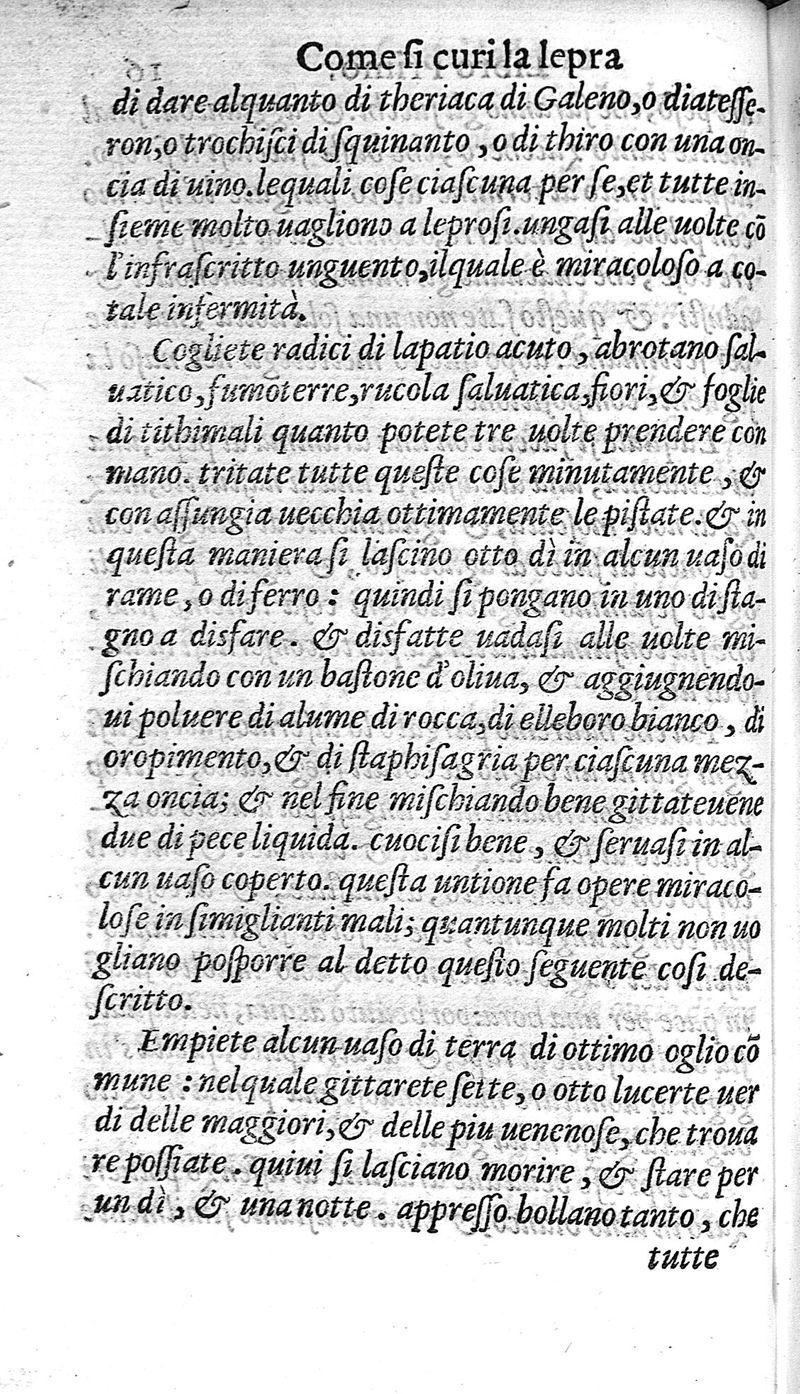 Come ſi curi la lepra
di dare alquanto di theriaca di Galeno, o diateſſe-
ron, o trochiſci di ſquinanto, o di thiro con una on-
cia di uino. lequali coſe ciaſcuna per ſe, et tutte in-
ſieme molto uagliono a leproſi. ungaſi alle uolte cō
l'infraſcritto unguento, ilquale è miracoloſo a co-
tale infermità.
Cogliete radici di lapatio acuto, abrotano ſal-
uatico, fumoterre, rucola ſaluatica, fiori, & foglie
di tithimali quanto potete tre uolte prendere con
mano. tritate tutte queſte coſe minutamente, &
con aſſungia uecchia ottimamente le piſtate. & in
queſta maniera ſi laſcino otto dì in alcun uaſo di
rame, o di ferro: quindi ſi pongano in uno di ſta-
gno a disfare. & disfatte uadaſi alle uolte mi-
ſchiando con un baſtone d'oliua, & aggiugnendo-
ui poluere di alume di rocca, di elleboro bianco, di
oropimento, & di ſtaphiſagria per ciaſcuna mez-
za oncia; & nel fine miſchiando bene gittateuene
due di pece liquida. cuociſi bene, & ſeruaſi in al-
cun uaſo coperto. queſta untione fa opere miraco-
loſe in ſimiglianti mali; quantunque molti non uo
gliano poſporre al detto queſto ſeguente coſi de-
ſcritto.
Empiete alcun uaſo di terra di ottimo oglio cō
mune: nel quale gittarete ſette, o otto lucerte uer
di delle maggiori, & delle piu uenenoſe, che troua
re poſſiate. quiui ſi laſciano morire, & ſtare per
un dì, & una notte. appreſſo bollano tanto, che
tutte